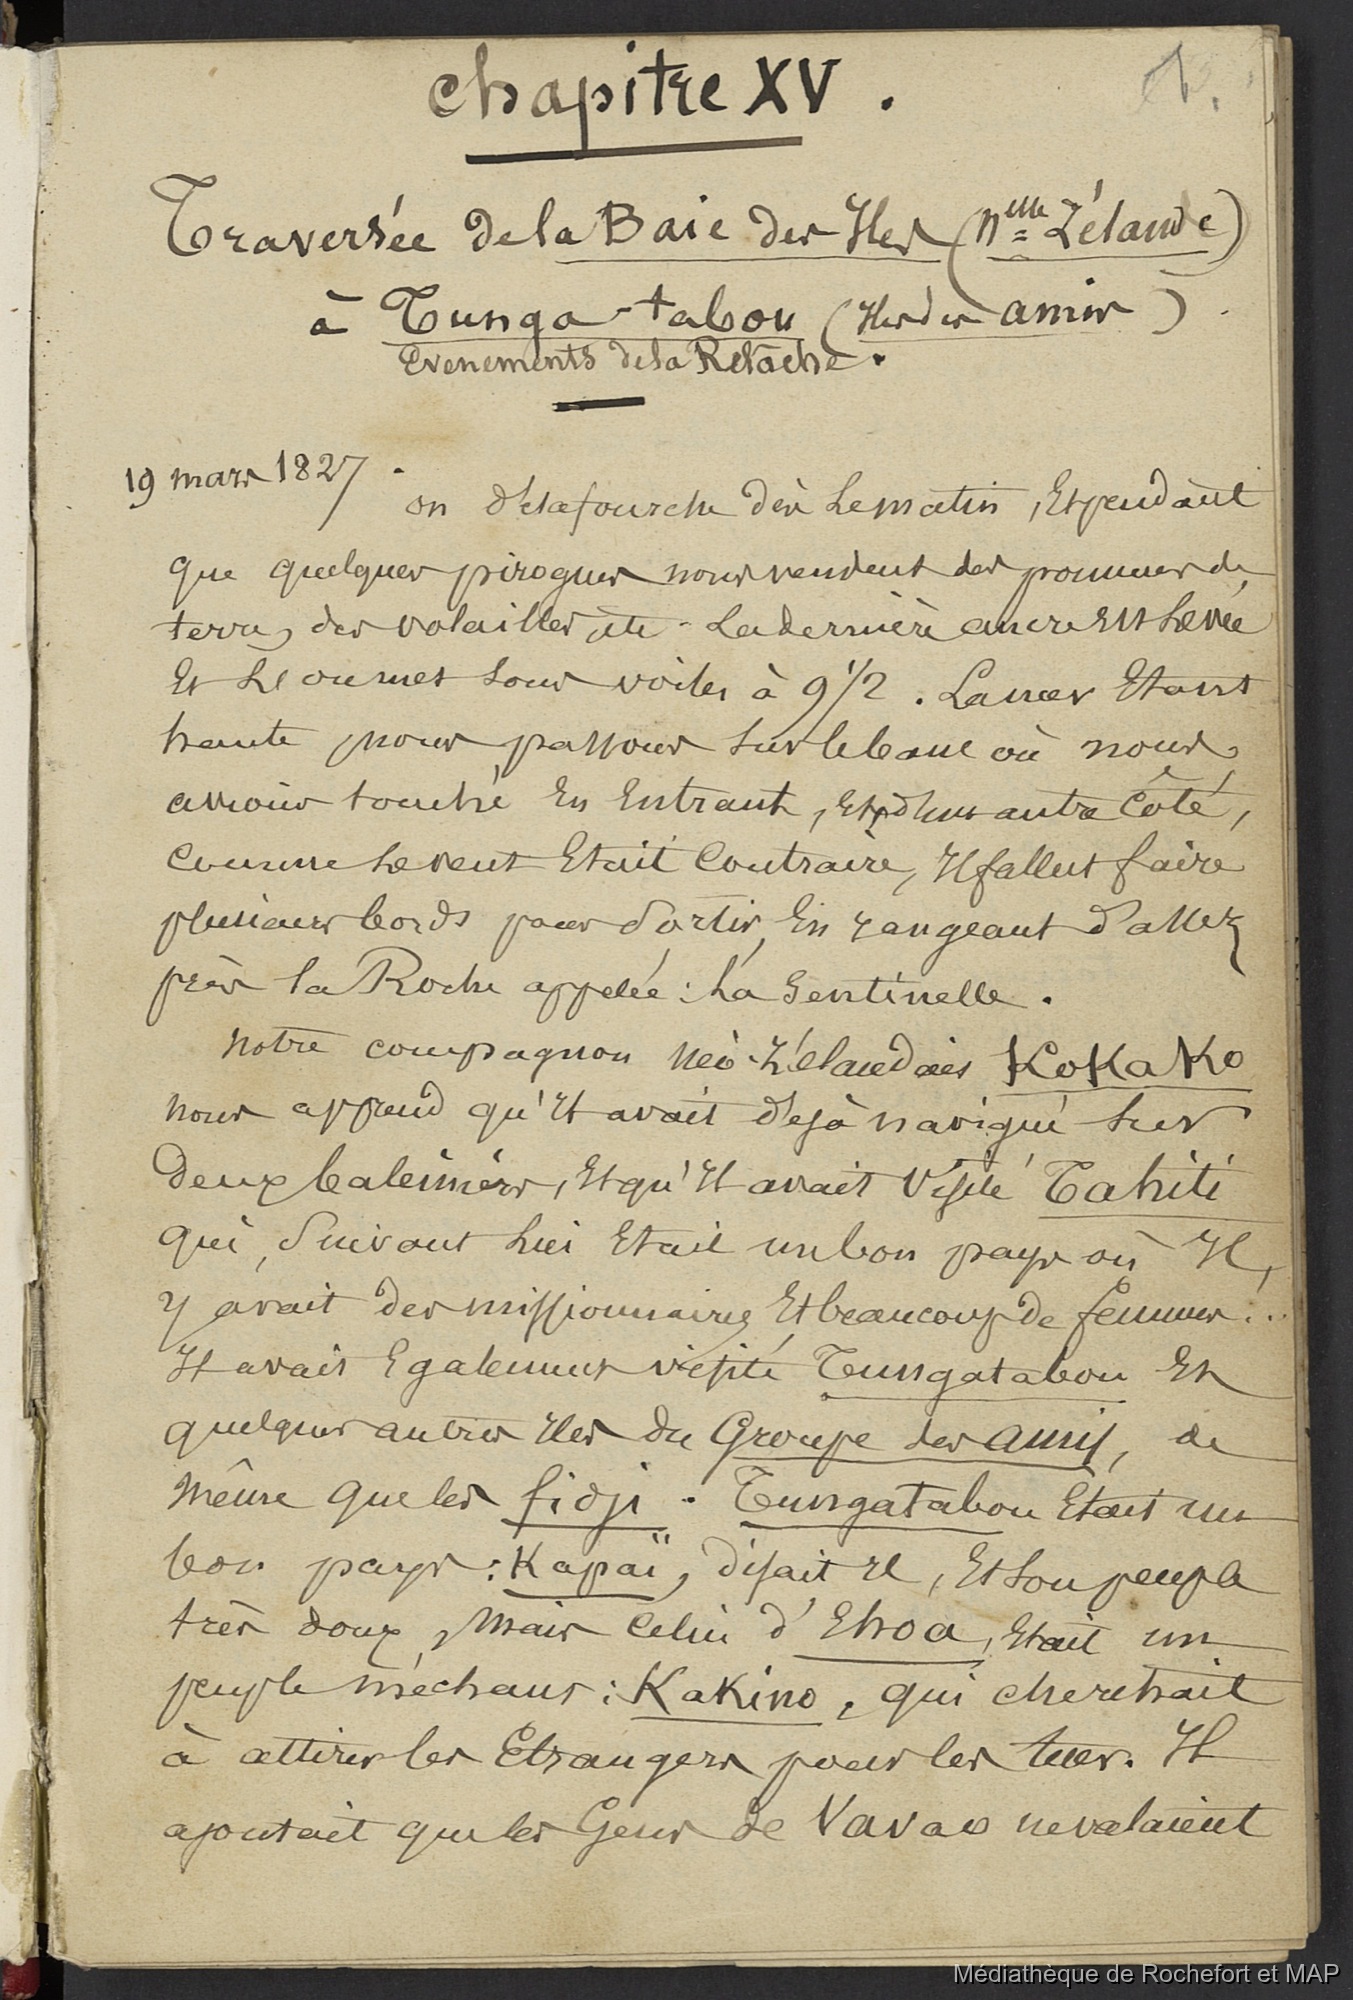 Chapitre XV.
Traversée de la Baie des Iles (Nlle Zélande)
à Tunga-tabou (Iles des amis)
Evenements de la Relâche.
19 mars 1827.
on désafourche dès le matin, Et pendant
que quelques pirogues nous vendent des pommes de
terre, des volailles, etc. La dernière ancre Est Levée
Et L'on met sous voiles à 9 1/2. La mer Etant
haute, nous passons sur le banc où nous
avions touché En Entrant, Et, d'un autre Côté,
Comme Le vent Etait Contraire, Il fallut faire
plusieurs bords pour Sortir, En rangeant d'assez
près la Roche appelée : La Sentinelle.
Notre compagnon Néo-Zélandais KoKaKo
nous apprend qu'Il avait déjà navigué sur
deux baleiniers, Et qu'Il avait Visité Tahiti
qui, Suivant Lui Etait un bon pays où Il
y avait des missionnaires Et beaucoup de femmes...
Il avait Egalement visité Tungatabou Et
quelques autres Iles du Groupe des amis, de
même que les fidji. Tungatabou Etait un
bon pays : Kapaï, disait Il, Et Son peuple
très doux, Mais Celui d'Ehoa, Etait un
peuple méchant : KaKino, qui cherchait
à attirer les Etrangers pour les tuer. Il
ajoutait que les Gens de Vavao ne valaient
Médiathèque de Rochefort et MAP